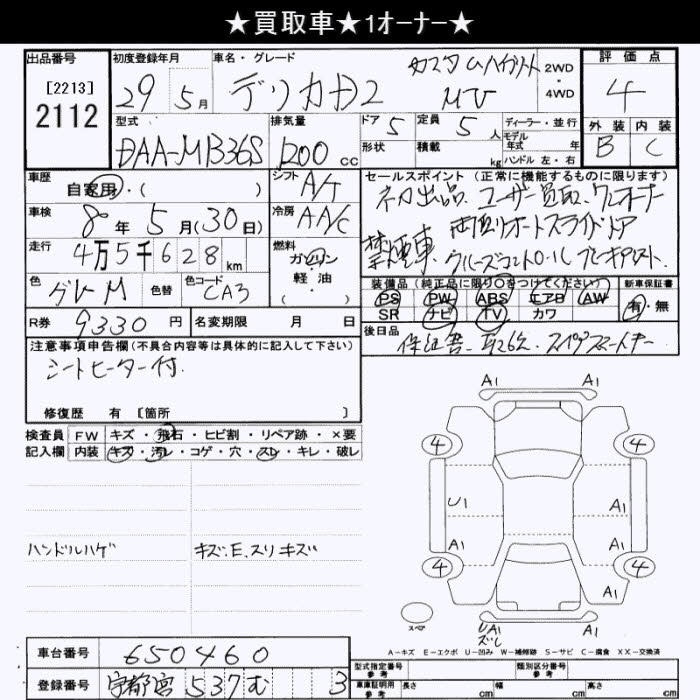 ★買取車★1オーナー★
出品番号
[2213]
2112
初度登録年月
29 5月
車名・グレード
デリカD2
カスタムハイブリット
MV
2WD
・
4WD
評価点
4
外装 内装
B C
型式
DAA-MB36S
排気量
1200 cc
ドア 5
形状
定員 5 人
積載 kg
ディーラー・並行
モデル年式 年
ハンドル 左・右
車歴
自家用・( )
シフト
A/T
車検
8年5月(30日)
冷房
AA/C
走行
4万5千628km
燃料
ガソリン
軽・油
色
グレーM
色替
色コード
CA3
R券
9330円
名変期限 月 日
セールスポイント(正常に機能するものに限ります)
ネカ出品 ユーザー買取 ワンオーナー
禁煙車 両側オートスライドドア
クルーズコントロール ブレーキアシスト
装備品(純正品に限り○をつけてください)
PS PW ABS エアB AW
SR ナビ TV カワ
新車保証書
有・無
後日品
保証書 取扱 スペアスマートキー
注意事項申告欄(不具合内容等は具体的に記入して下さい)
シートヒーター付
修復歴 有 [箇所 ]
検査員 FW キズ・飛石・ヒビ割・リペア跡・×要
記入欄 内装 キズ・汚レ・コゲ・穴・スレ・キレ・破レ
ハンドルハゲ
キズ.E.スリキズ
A1
4 4
U1 A1
A1 A1
4 4
A1 A1
UA1
ズレ
スペア
A1
A-キズ E-エクボ U-凹み W-補修跡 S-サビ C-腐食 XX-交換済
車台番号
650460
登録番号
宇都宮 537 む 3
型式指定番号
参考
類別区分番号
参考
車庫証明用
参考
長さ cm 幅 cm 高さ cm